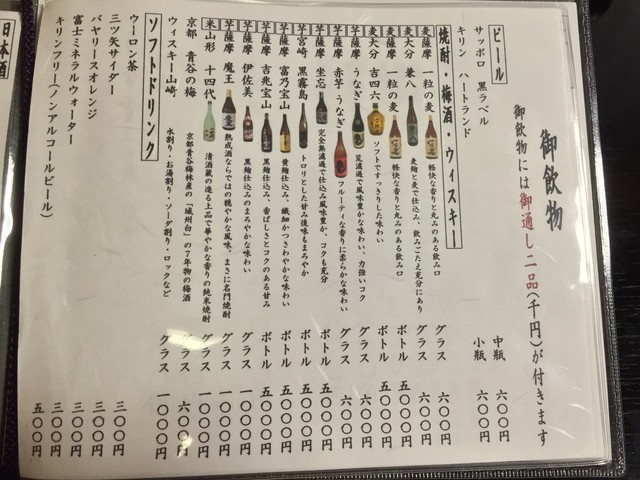 御飲物
御飲物には御通し二品(千円)が付きます
ビール
サッポロ 黒ラベル 中瓶 六〇〇円
キリン ハートランド 小瓶 六〇〇円
焼酎・梅酒・ウィスキー
麦 薩摩 一粒の麦 軽快な香りと丸みのある飲み口 グラス 六〇〇円
麦 大分 兼八 麦麹と麦で仕込み、飲みごたえ充分にあり グラス 六〇〇円
麦 薩摩 一粒の麦 軽快な香りと丸みのある飲み口 ボトル 五〇〇〇円
麦 大分 吉四六 ソフトですっきりした味わい ボトル 五〇〇〇円
芋 薩摩 うなぎ 荒濾過で風味豊かな味わい、力強いコク グラス 六〇〇円
芋 薩摩 赤芋 うなぎ フルーティな香りに柔らかな味わい グラス 六〇〇円
芋 薩摩 坐忘 完全無濾過で仕込み風味豊か、コクも充分 ボトル 五〇〇〇円
芋 宮崎 黒霧島 トロリとした甘み後味もまろやか ボトル 五〇〇〇円
芋 薩摩 富乃宝山 黄麹仕込み、繊細かつさわやかな味わい ボトル 五〇〇〇円
芋 薩摩 吉兆宝山 黒麹仕込み、香ばしさとコクのある甘み ボトル 五〇〇〇円
芋 薩摩 伊佐美 黒麹仕込みのまろやかな味わい グラス 一〇〇〇円
芋 薩摩 魔王 熟成酒ならではの穏やかな風味、まさに名門焼酎 グラス 一〇〇〇円
米 山形 十四代 清酒蔵の造る上品で華やかな香りの純米焼酎 グラス 一〇〇〇円
京都 青谷の梅 京都青谷梅林産の「城州白」の7年物の梅酒 グラス 六〇〇円
ウィスキー山崎 水割り・お湯割り・ソーダ割り・ロックなど グラス 一〇〇〇円
ソフトドリンク
ウーロン茶 三〇〇円
三ツ矢サイダー 三〇〇円
バヤリースオレンジ 三〇〇円
富士ミネラルウォーター 三〇〇円
キリンフリー(ノンアルコールビール) 五〇〇円
日本酒